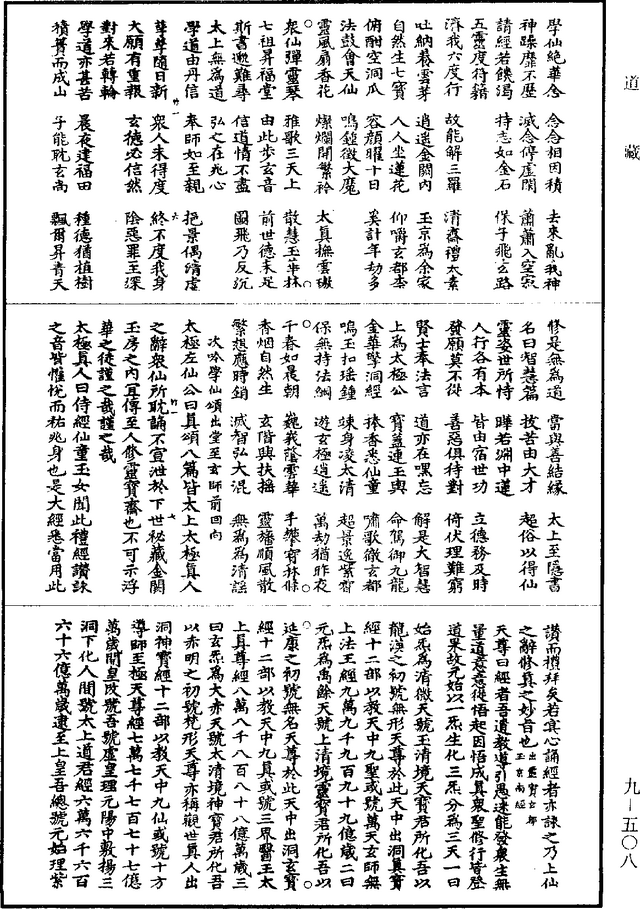 道藏
學仙絕華念 念念相因積 去來亂我神
神躁靡不歷 滅念停虛閑 蕭蕭入空寂
請經若飢渴 持志如金石 保子飛玄路
五靈度符籍
濟我六度行 故能解三羅 清齋禮太素
吐納養雲芽 逍遙金闕內 玉京為余家
自然生七寶 人人坐蓮花 仰嚼玄都柰
俯酣空洞瓜 容顏曜十日 奚計年劫多
法鼓會天仙 鳴鍾徵大魔
靈風扇香花 燦爛開繁衿 太真撫雲璈
眾仙彈靈琴 雅歌三天上 散慧玉華林
七祖昇福堂 由此步玄音 前世德未足
斯書邈難尋 信道情不盡 國飛乃反沉
太上無為道 弘之在兆心
學道由丹信 奉師如至親 挹景偶清虛
孳孳隨日新 眾人未得度 終不度我身
大願有重報 玄德必信然 陰惡罪至深
對來若轉輪
學道亦甚苦 晨夜建福田 種德猶植樹
積簣而成山 子能耽玄尚 飄爾昇青天
修是無為道 當與善結緣 太上至隱書
名曰智慧篇 拔苦由大才 超俗以得仙
靈姿世所恃 曄若淵中蓮
人行各有本 皆由宿世功 立德務及時
發願莫不從 善惡俱待對 倚伏理難窮
賢士奉法言 道亦在嘿忘 解是大智慧
上為太極公 寶蓋連玉輿 命駕御九龍
金華擎洞經 捧香悉仙童 嘯歌徹玄都
鳴玉扣瑤鍾 竦身凌太清 超景逸紫智
保無持法綱 遊玄極逍遙 萬劫猶昨夜
千春如晨朝 巍峩蔭雲華 手攀寶林條
香烟自然生 玄階與扶搖 靈旛順風散
繁想應時銷 滅智弘大混 無為為清謡
次吟學仙頌出堂至玄師前回向
太極左仙公曰真頌八篇皆太上太極真人
之辭眾仙所耽誦不宣泄於下世祕藏金闕
玉房之內宜傳至人修靈寶齋也不可示浮
華之徒謹之哉謹之哉
太極真人曰侍經仙童玉女聞此禮經讚詠
之音皆懽悅而祐兆身也是大經悉當用此
讚而禮拜矣若冥心誦經者亦詠之乃上仙
之辭修真之妙旨也出靈寶玄都玉京南經
天尊曰經者吾道教導引愚迷能發眾生無
量道意意從悟起因悟成真眾聖修行皆登
道果故元始以一炁生化三炁分為三天一曰
始炁為清微天號玉清境天寶君所化吾以
龍漢之初號無形天尊於此天中出洞真寶
經十二部以教天中九聖或號萬天玄師無
上法王經九萬九千九百九十九億歲二曰
元炁為禹餘天號上清境靈寶君所化吾以
延康之初號無名天尊於此天中出洞玄寶
經十二部以教天中九真或號三界醫王太
上真尊經八萬八千八百八十八億萬歲三
曰玄炁為大赤天號太清境神寶君所化吾
以赤明之初號梵形天尊亦稱觀世真人出
洞神寶經十二部以教天中九仙或號十方
導師至極天尊經七萬七千七百七十七億
萬歲開皇改號吾號虛皇理元陽中數揚三
洞下化人間號太上道君經六萬六千六百
六十六億萬歲逮至上皇吾總號元始理紫
九—五〇八